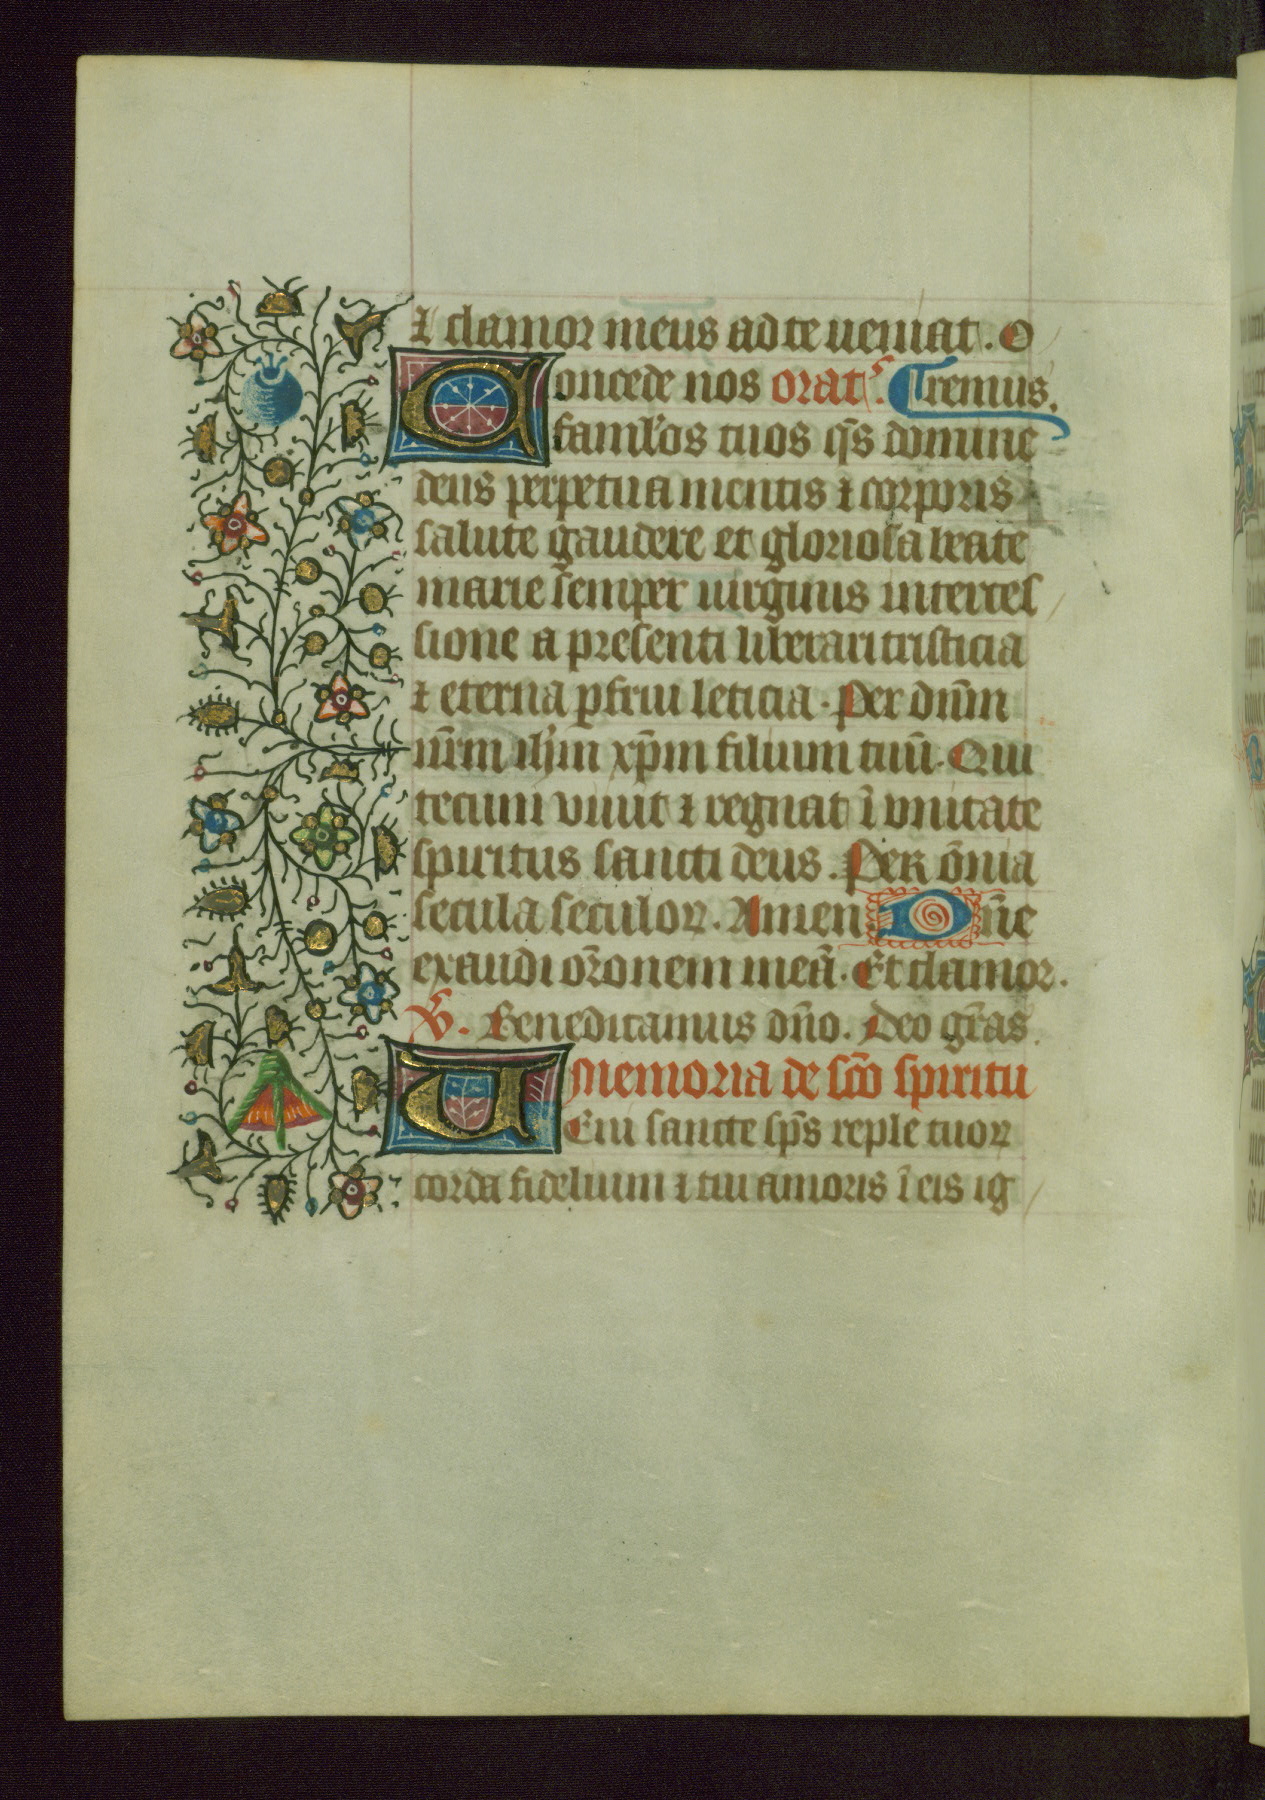 ⁊ clamor meus ad te ueniat. O
Concede nos orat᷒. ¶remus.
famlos tuos q̄s domine
deus perpetua mentis ⁊ corporis
salute gaudere et gloriosa beate
marie semper uirginis interces
sione a presenti liberari tristicia
⁊ eterna ꝑfrui leticia. Per dn̄m
nr̄m ih̄m xp̄m filium tuū. Qui
tecum viuit ⁊ regnat ī vnitate
spiritus sancti deus. Per ōnia
secula seculoꝝ. Amen Dn̄e
exaudi or̄onem meā. Et clamor.
℣. Benedicamus dn̄o. Deo gr̄as.
Memoria de sc̄o spiritu
UEni sancte sp̄s reple tuoꝝ
corda fidelium ⁊ tui amoris ī eis ig